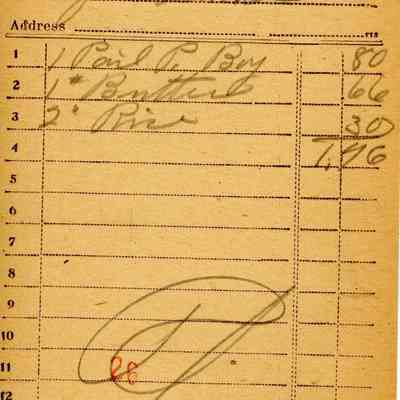 Address
1 1 Pail P. Boy 80
2 1 " Butter 66
3 2 " Rice 30
4 1.76
5
6
7
8
9
10
11 28
12